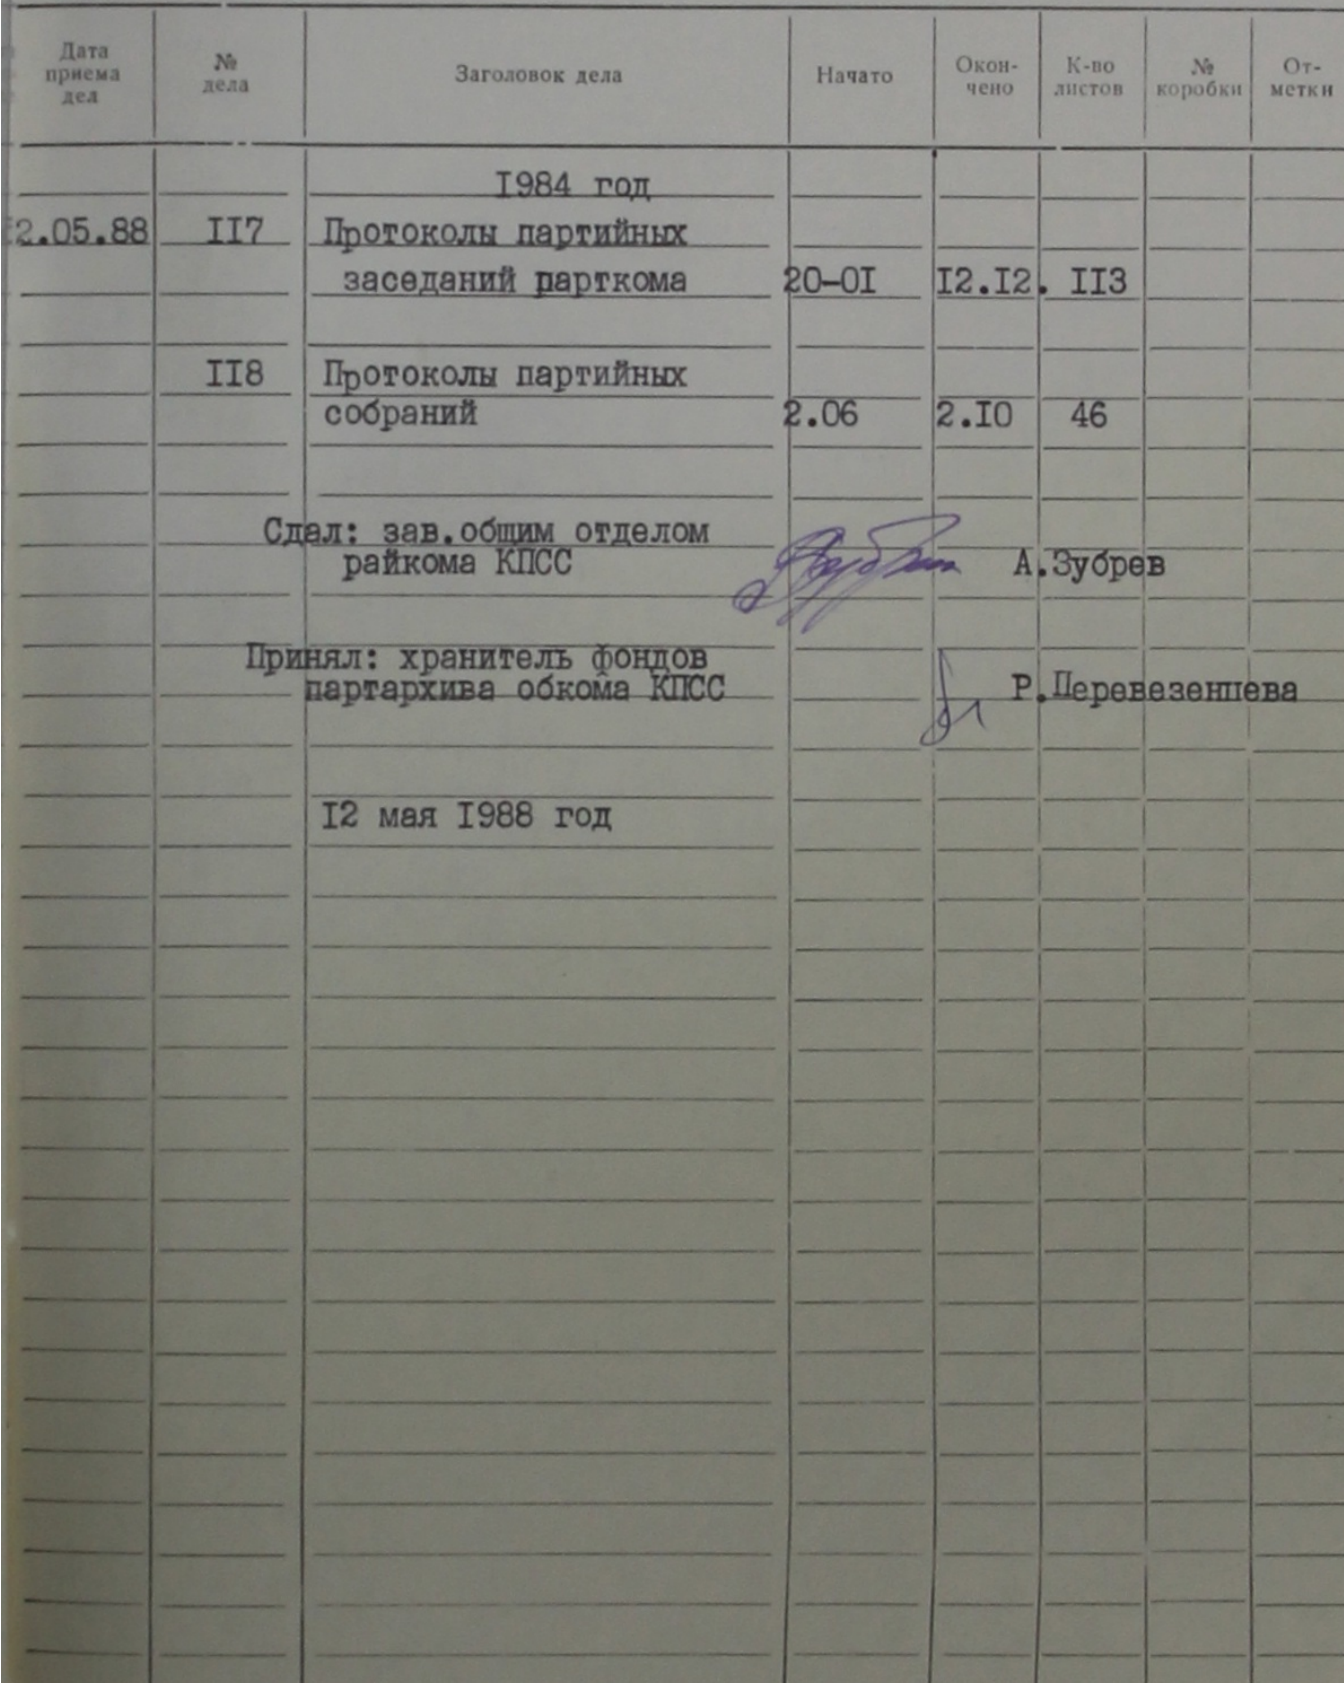 Дата приема дел № дела Заголовок дела Начато Окон-чено К-во листов № коробки От-метки
1984 год
2.05.88 117 Протоколы партийных
заседаний парткома 20-01 12.12. 113
118 Протоколы партийных
собраний 2.06 2.10 46
Сдал: зав.общим отделом
райкома КПСС А.Зубрев
Принял: хранитель фондов
партархива обкома КПСС Р.Перевезенцева
12 мая 1988 год